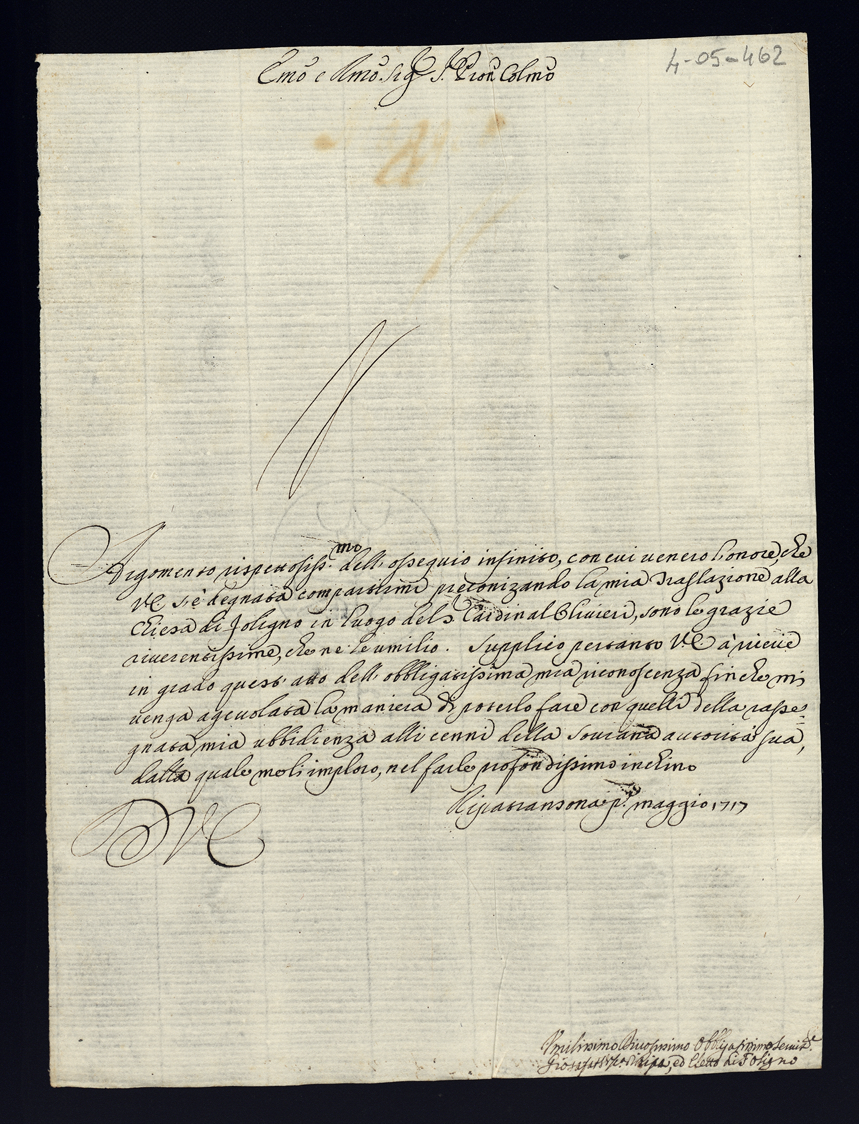 4-05-462
Emõ e Rmõ Sig.r S. Pron Colmõ
Argomento rispettosiss.mo dell'ossequio infinito, con cui venero l'onore, che
V.E. s'è degnata compartirmi preconizando la mia Traslazione alla
Chiesa di Foligno in luogo del S. Cardinal Olivieri, sono le grazie
riverentissime, che ne le umilio. Supplico pertanto V.E. à ricevere
in grado quest'atto dell'obbligatissima mia riconoscenza finche mi
venga agevolata la maniera di poterlo fare con quelli della rasse=
gnata mia ubbidienza alli cenni della Sourana autorità sua,
dalla quale me li imploro, nel farle profondissimo inchino
Ripatransona p.o maggio 1717
D V E
Umilissimo Obbligatissimo Servit.e
Giosafat di Ripa, ed Eletto di Foligno